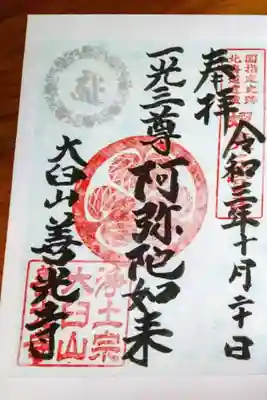 奉拝
令和三年十月二十日
一光三尊 阿弥陀如来
大臼山 善光寺
国指定史跡
浄土宗
大臼山